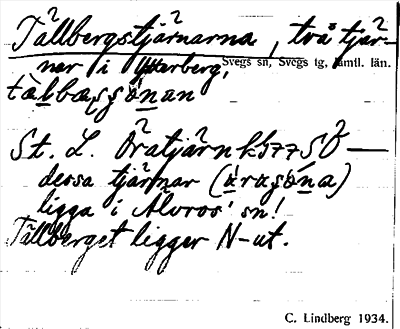 Tällbergstjärnarna, två tjär-
nar i Ytterberg,
Svegs sn, Svegs tg, Jämtl. län.
St. L. Öratjärn k577SO —
dessa tjärnar (
ligga i Älvros' sn!
Tällberget ligger N-ut.
C. Lindberg 1934.